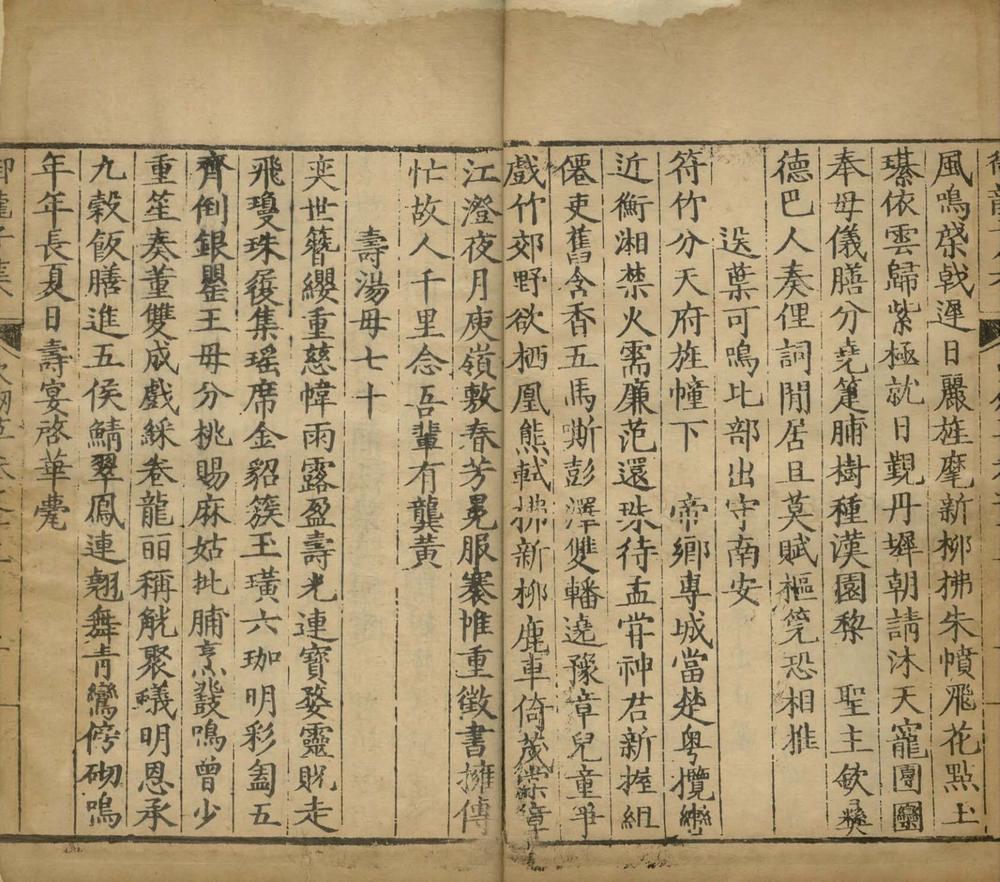 風鳴棨戟遲日麗旌麾新柳拂朱幩飛花點上
綦依雲歸紫極就日覲丹墀朝請沐天寵團圞
奉母儀膳分堯箑脯樹種漢園棃 聖主欽彜
德巴人奏俚詞閒居且莫賦樞筦恐相推
送葉可鳴比部出守南安
符竹分天府旌幢下 帝鄉專城當楚粤攬轡
近衡湘禁火需廉范還珠待孟嘗神君新握組
僊吏舊含香五馬嘶彭澤雙轓遶豫章兒童爭
戲竹郊野欲栖凰熊軾拂新柳鹿車倚茂樟章
江澄夜月庾嶺敷春芳冕服褰帷重徵書擁傳
忙故人千里念吾輩有龔黃
壽湯母七十
奕世簪纓重慈幃雨露盈壽光連寶婺靈貺走
飛瓊珠履集瑤席金貂簇玉璜六珈明彩匐五
齊倒銀罌王母分桃賜麻姑批脯烹發鳴曾少
重笙奏董雙成戲綵卷龍酾稱觥聚蟻明恩承
九穀飯膳進五侯鯖翠鳳連翹舞青鸞傍砌鳴
年年長夏日壽宴啓華甍